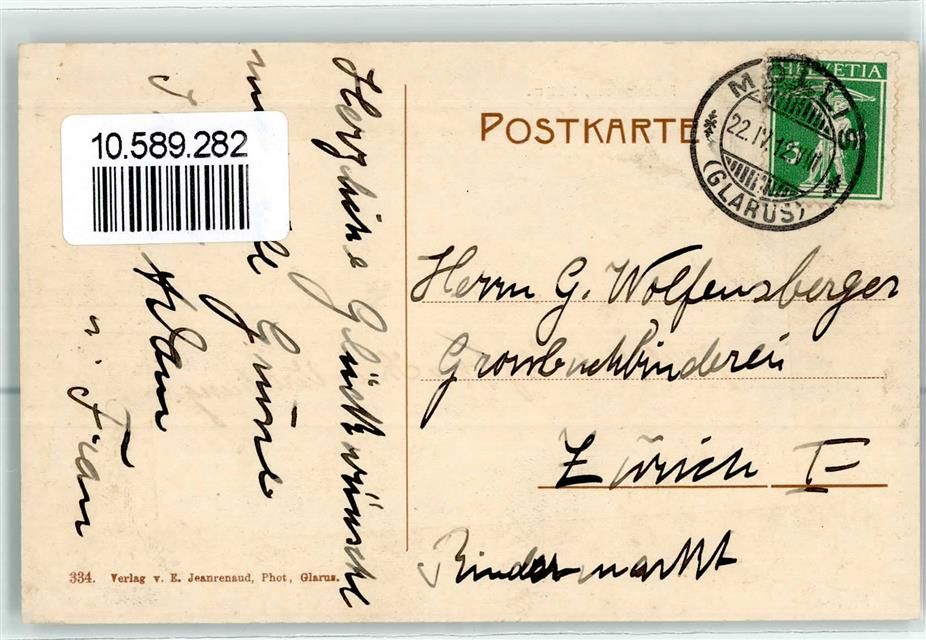 10.589.282
Herzliche Glückwünsche
Grüße
Adam
u. Frau
334. Verlag v. E. Jeanrenaud, Phot., Glarus.
POSTKARTE
HELVETIA
5
MOLLIS
22.IV.12
(GLARUS)
Herrn G. Wolfensberger
Grossbuchbinderei
Zürich I
Rindermarkt